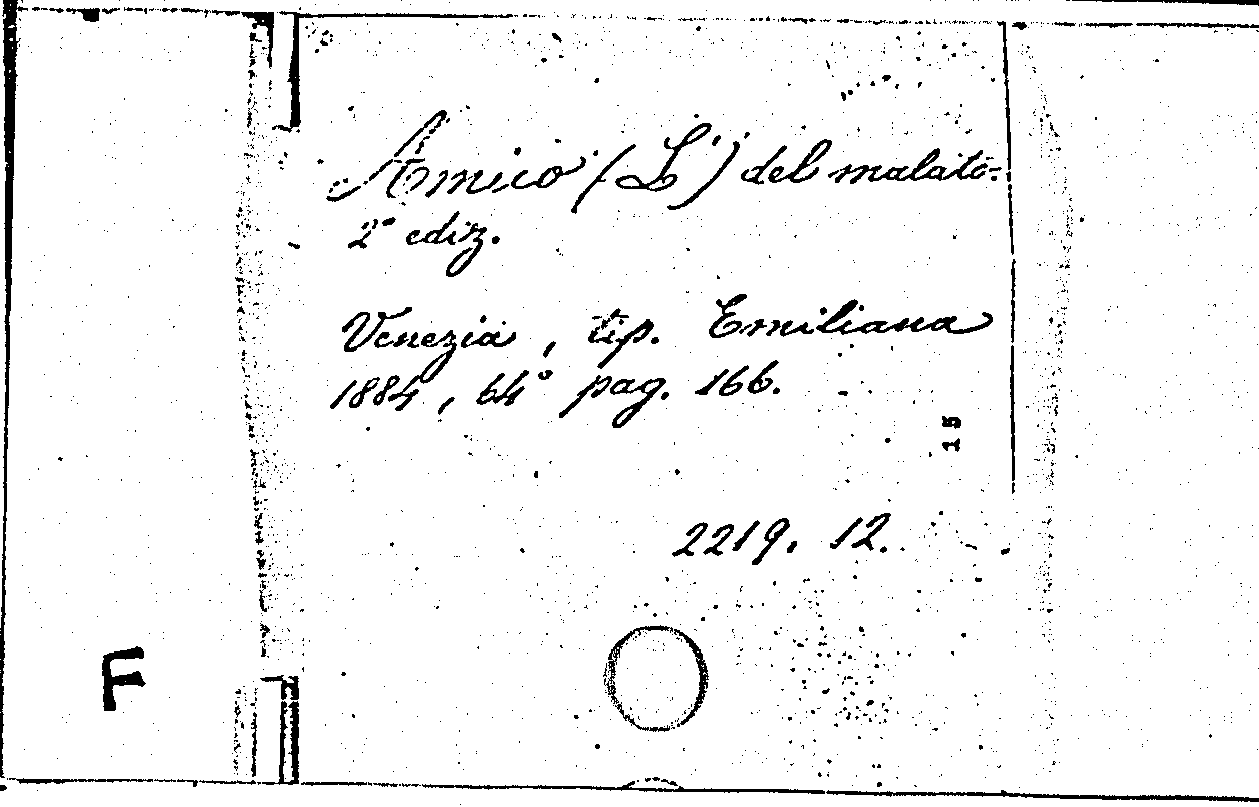 Amico (L') del malato.
2ª ediz.
Venezia, tip. Emiliana
1884, 64° pag. 166.
15
2219. 12.
F